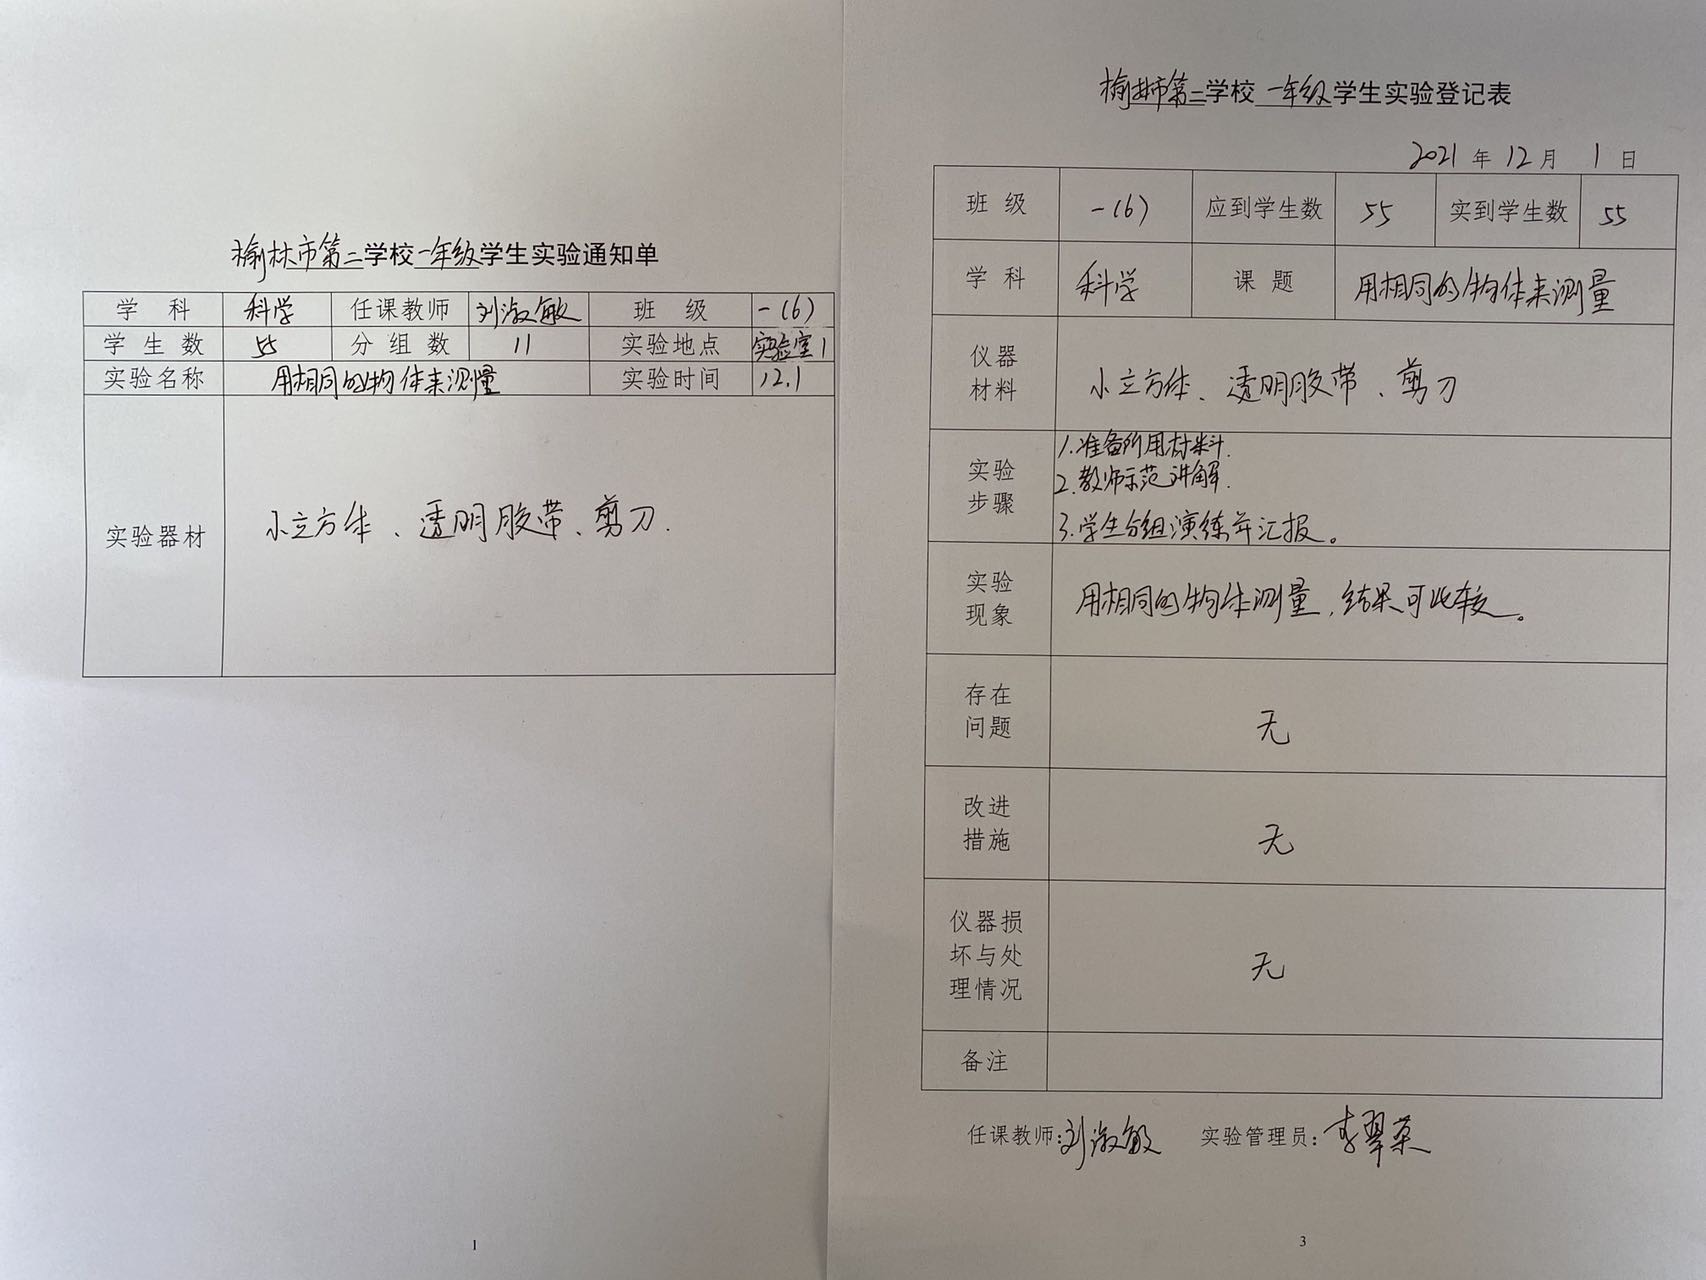 榆林市第二学校一年级学生实验通知单
学科 科学 任课教师 刘淑敏 班级 一(6)
学生数 55 分组数 11 实验地点 实验室1
实验名称 用相同的物体来测量 实验时间 12.1
实验器材 小立方体、透明胶带、剪刀.
1
榆林市第二学校一年级学生实验登记表
2021年12月1日
班级 一(6) 应到学生数 55 实到学生数 55
学科 科学 课题 用相同的物体来测量
仪器
材料
小立方体、透明胶带、剪刀
实验
步骤
1.准备所用材料.
2.教师示范讲解.
3.学生分组演练并汇报。
实验
现象
用相同的物体测量,结果可比较。
存在
问题
无
改进
措施
无
仪器损
坏与处
理情况
无
备注
任课教师:刘淑敏 实验管理员:李翠荣
3